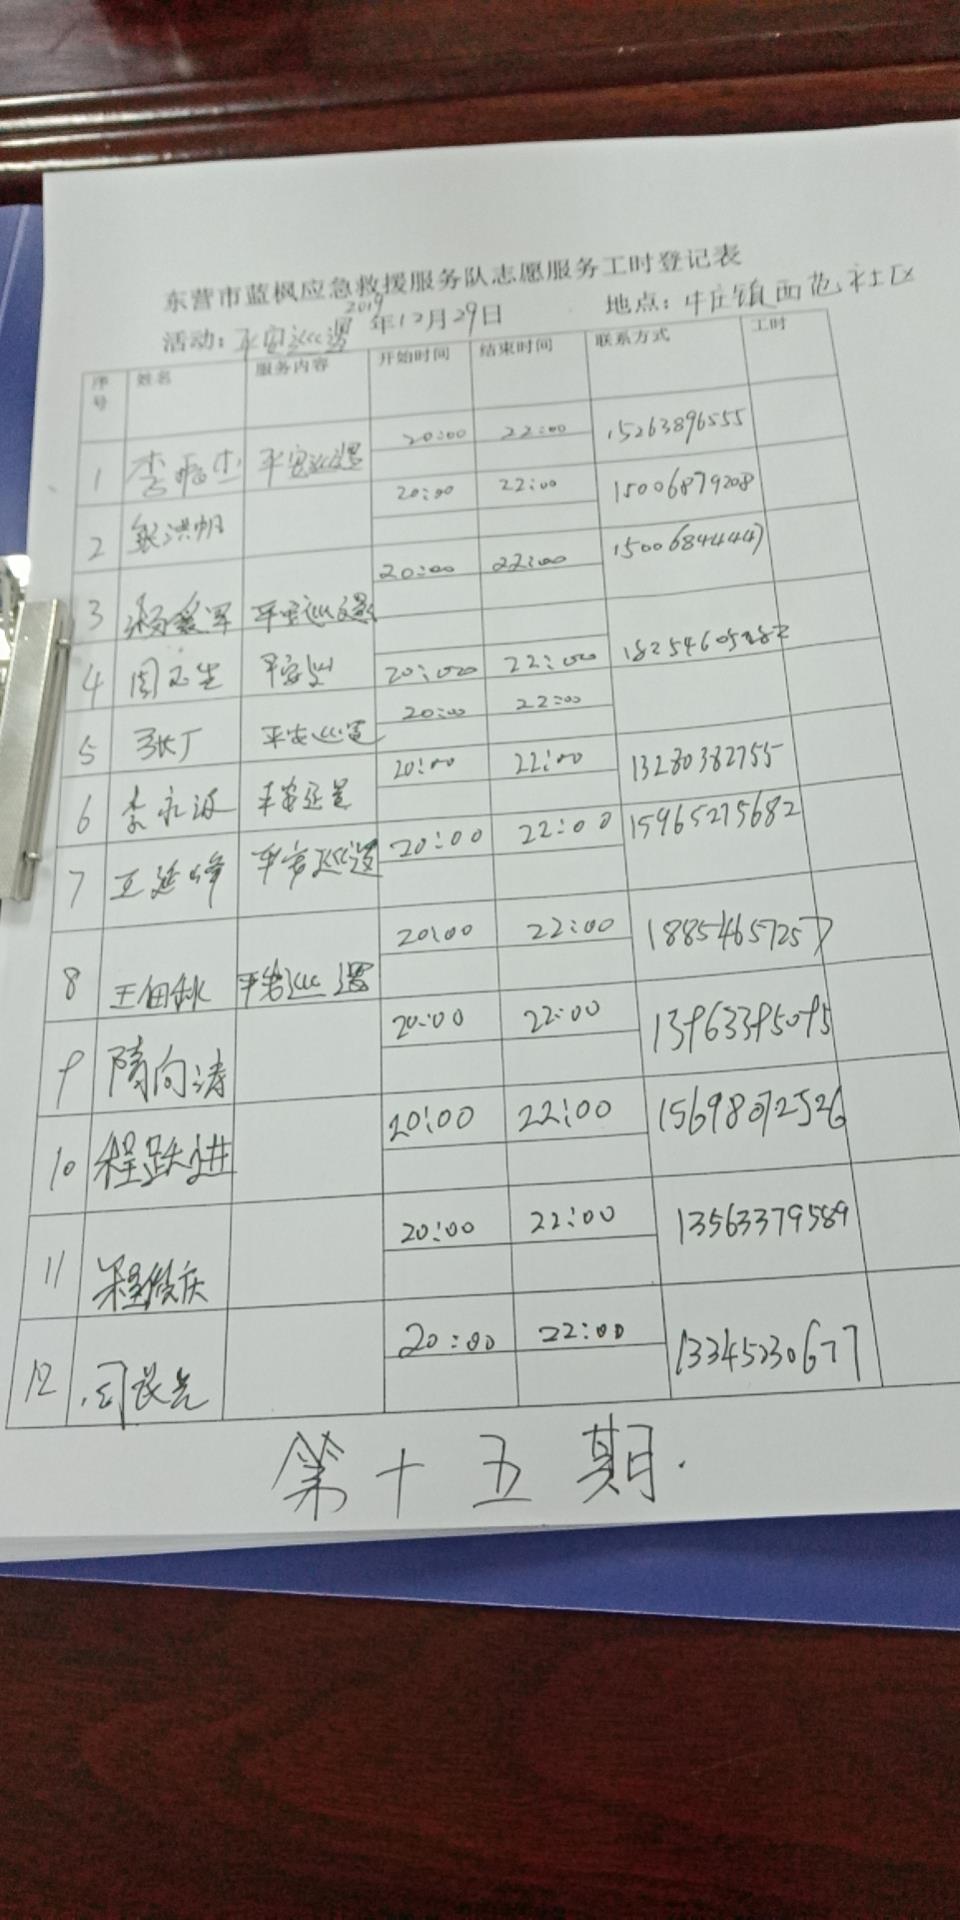 东营市蓝枫应急救援服务队志愿服务工时登记表
活动：平安巡逻 2019年12月29日 地点：牛庄镇西范社区
序号 姓名 服务内容 开始时间 结束时间 联系方式 工时
1 李 平安巡逻 20:00 22:00 15263896555
2 洪帆 20:00 22:00 15006879208
3 杨爱军 平安巡逻 20:00 22:00 15006844447
4 周 平安巡 20:00 22:00
5 张广 平安巡逻 20:00 22:00
6 李永波 平安巡逻 20:00 22:00 13280382755
7 王延峰 平安巡逻 20:00 22:00 15965275682
8 王佃秋 平安巡逻 20:00 22:00 18854657257
9 隋向涛 20:00 22:00 13963395095
10 程跃进 20:00 22:00 15698072526
11 程俊庆 20:00 22:00 13563379589
12 20:00 22:00 13345230677
第十五期.